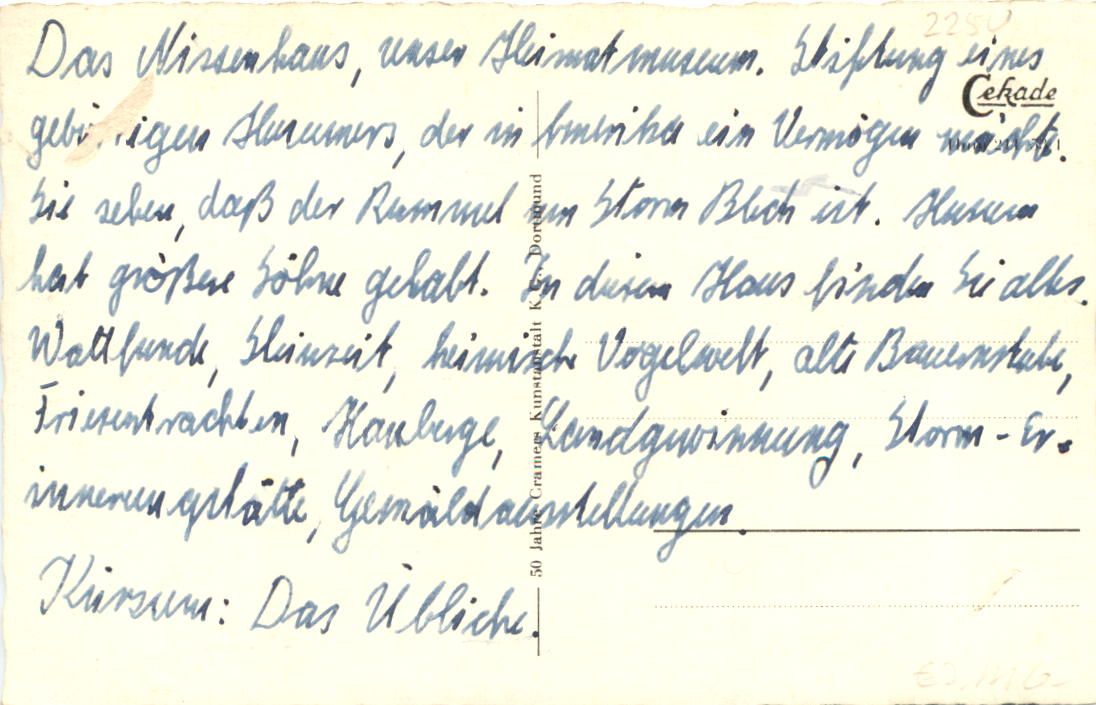 2254
Das Nissenhaus, unser Heimatmuseum. Stiftung eines
Cekade
gebürtigen Husumers, der in Amerika ein Vermögen machte.
Sie sehen, daß der Rummel um Storm Blech ist. Husum
hat größere Söhne gehabt. In diesem Haus finden Sie alles.
Wattfunde, Steinzeit, heimische Vogelwelt, alte Bauernstube,
Friesentrachten, Hauberge, Landgewinnung, Storm-Er-
innerungstätte, Gemäldeausstellungen.
Kurzum: Das Übliche.
50 Jahre Cramers Kunstanstalt K.G., Dortmund